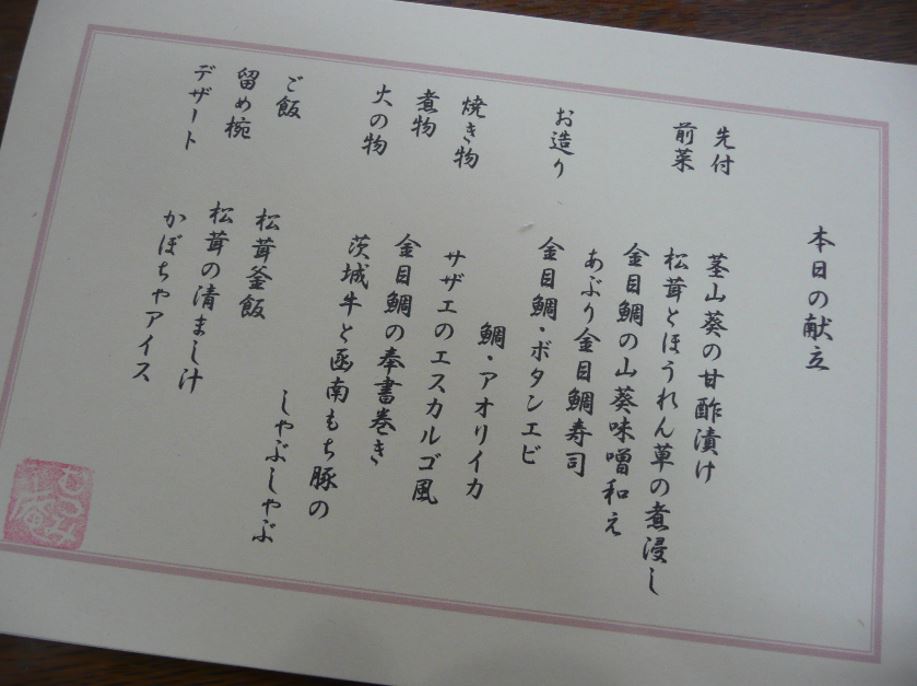 本日の献立
先付 茎山葵の甘酢漬け
前菜 松茸とほうれん草の煮浸し
金目鯛の山葵味噌和え
あぶり金目鯛寿司
お造り 金目鯛・ボタンエビ
鯛・アオリイカ
焼き物 サザエのエスカルゴ風
煮物 金目鯛の奉書巻き
火の物 茨城牛と函南もち豚の
しゃぶしゃぶ
ご飯 松茸釜飯
留め椀 松茸の清まし汁
デザート かぼちゃアイス